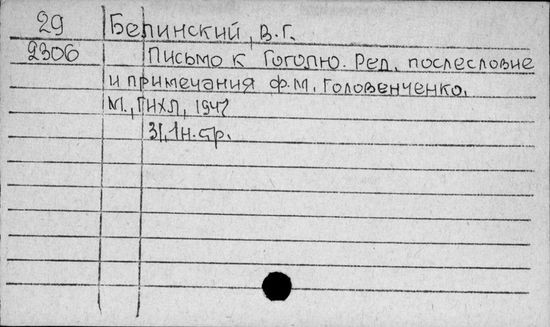 29 Белинский, В.Г.
2306 Письмо к Гоголю. Ред., послесловие
и примечания Ф.М. Головенченко.
М., ГИХЛ, 1947
31, 1 н. стр.